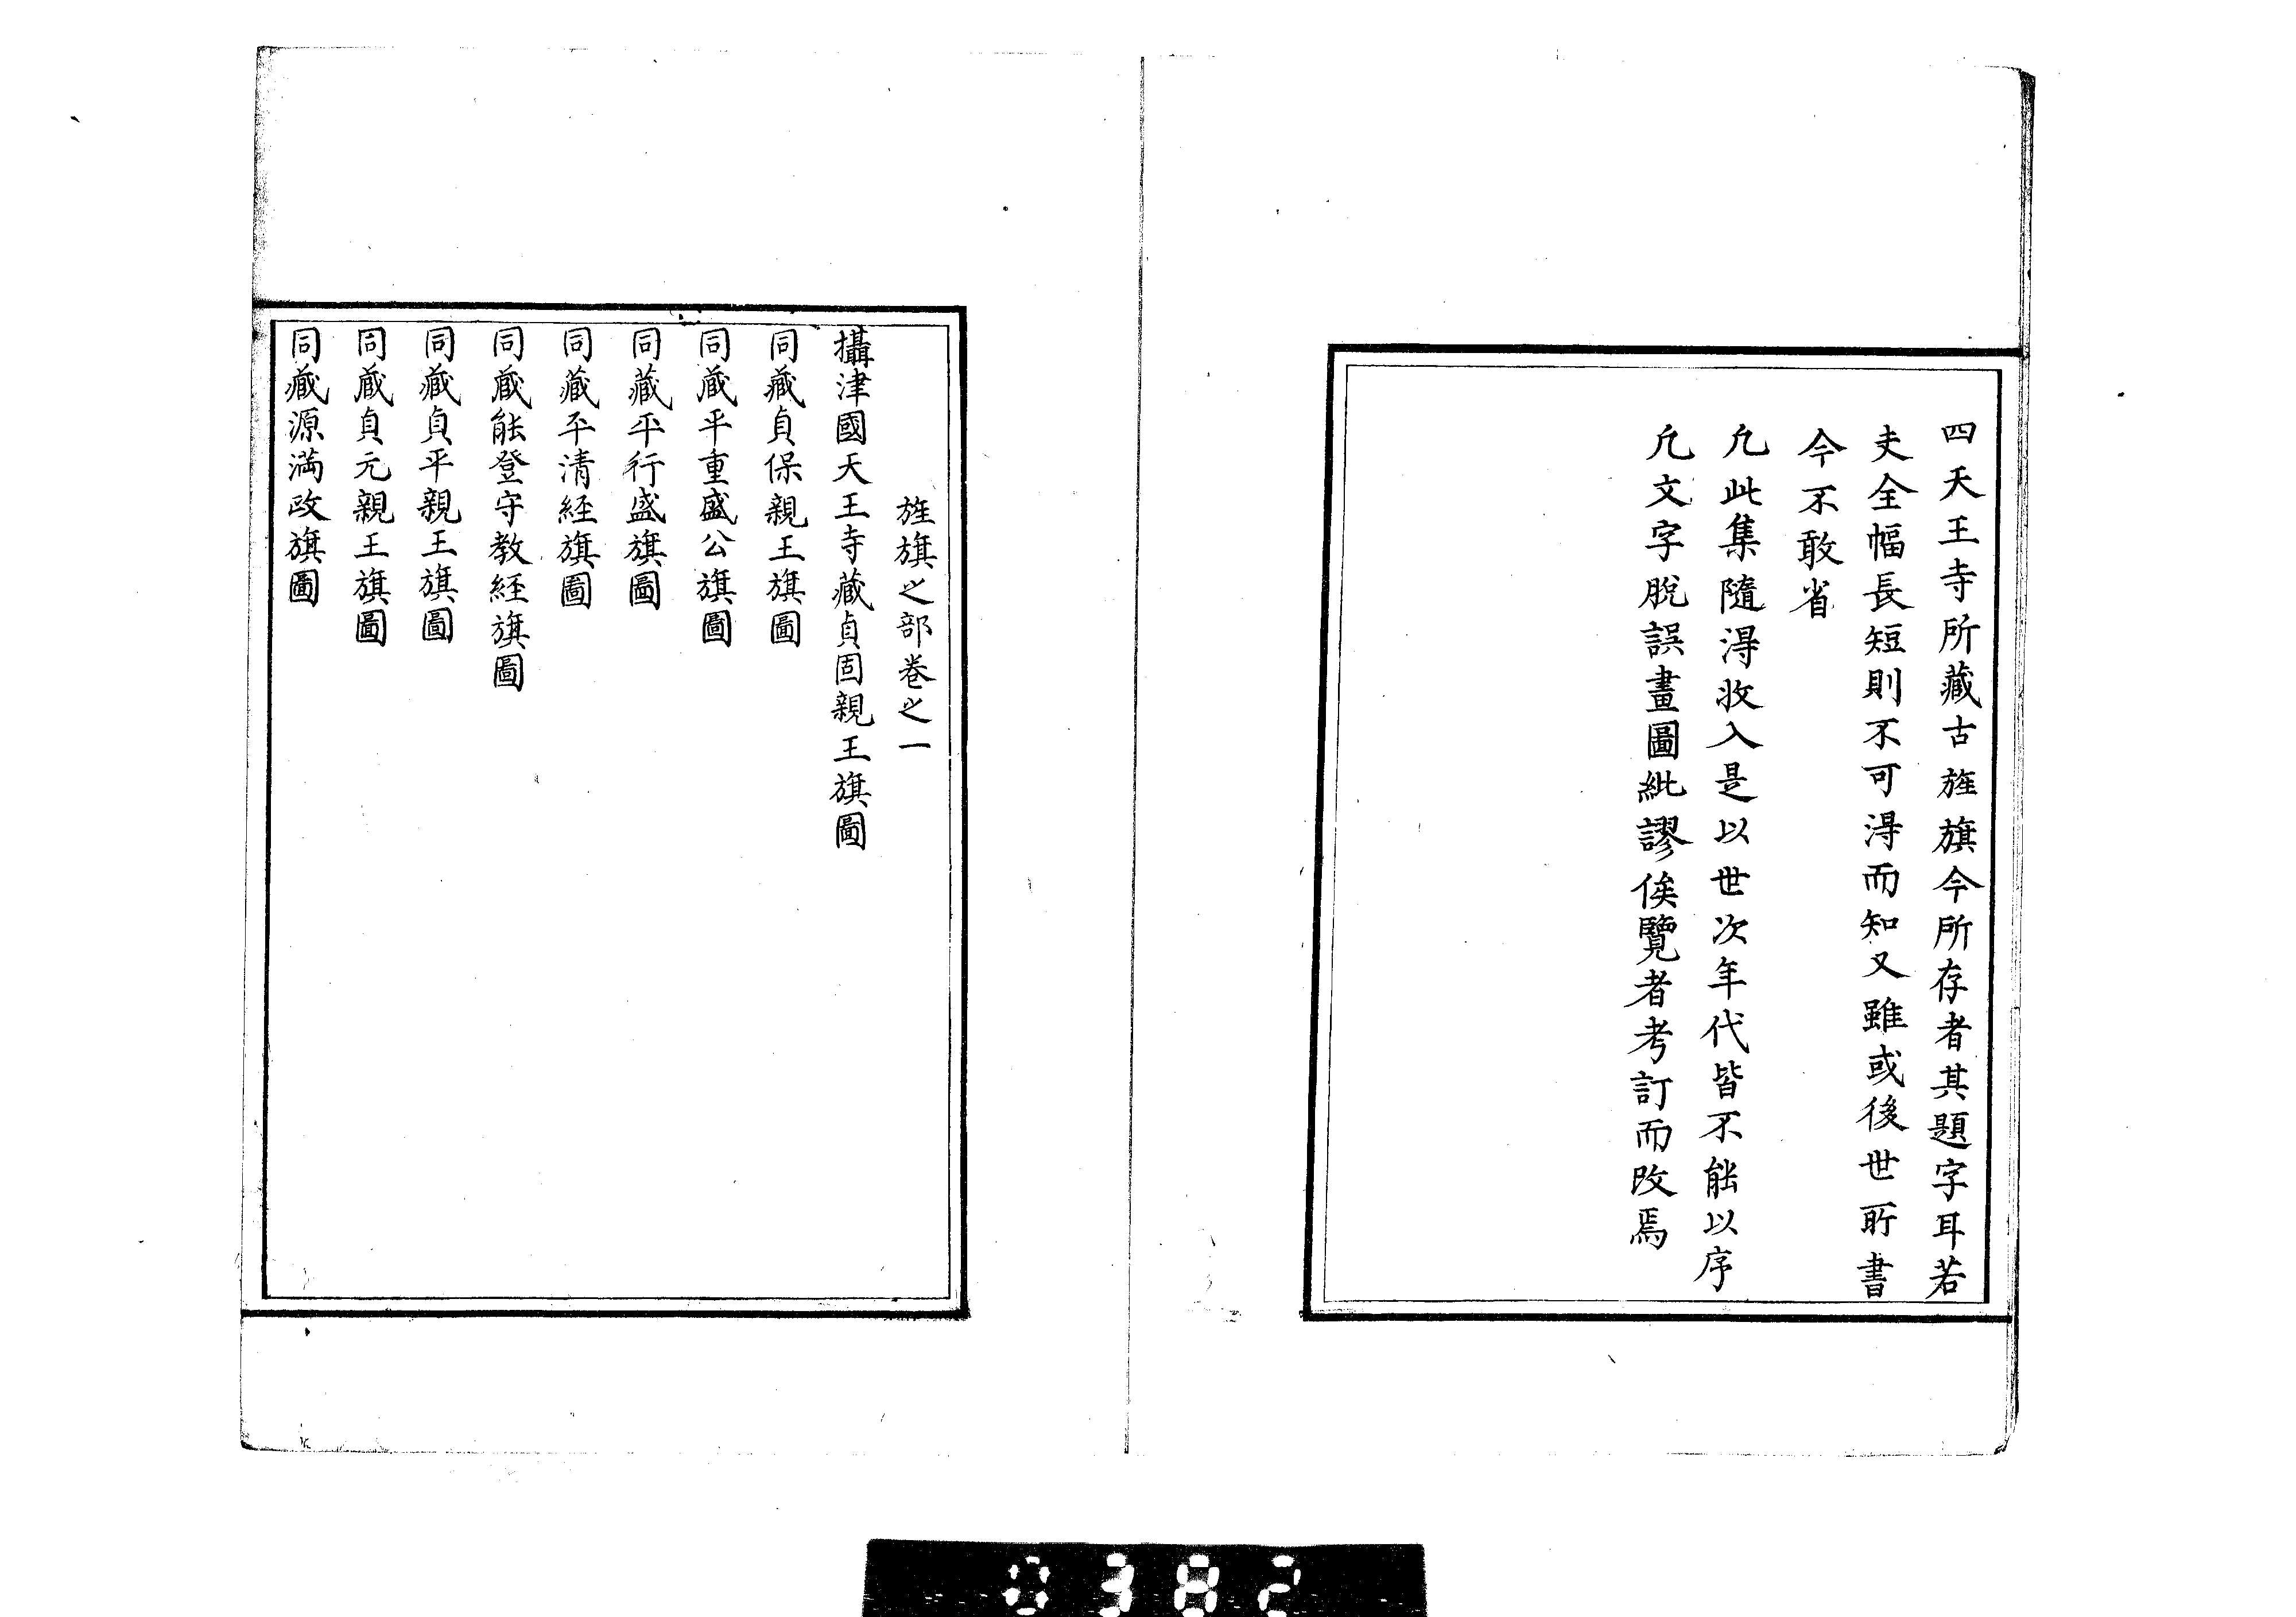 四天王寺所藏古旌旗今所存者其題字耳若
夫全幅長短則不可淂而知又雖或後世所書
今不敢省
凢此集隨淂收入是以世次年代皆不能以序
凢文字脫誤畫圖紕謬俟覽者考訂而改焉
旌旗之部卷之一
攝津國天王寺藏貞固親王旗圖
同藏貞保親王旗圖
同藏平重盛公旗圖
同藏平行盛旗圖
同藏平清経旗圖
同藏能登守教経旗圖
同藏貞平親王旗圖
同藏貞元親王旗圖
同藏源満政旗圖
0382